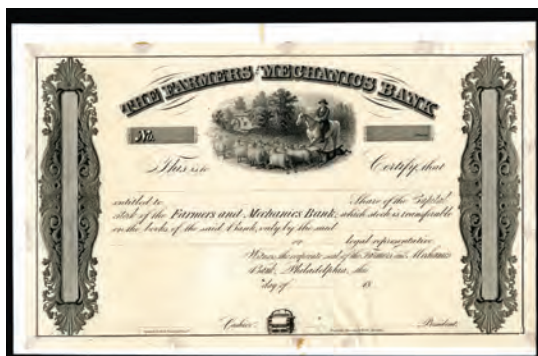 THE FARMERS & MECHANICS BANK
No.
This is to Certify, that
entitled to Share of the Capital
stock of the Farmers and Mechanics Bank, which stock is transferable
on the books of the said Bank, only by the said
or legal representative
Witness, the corporate seal of the Farmers and Mechanics
Bank, Philadelphia, the
day of 18
Cashier. President.